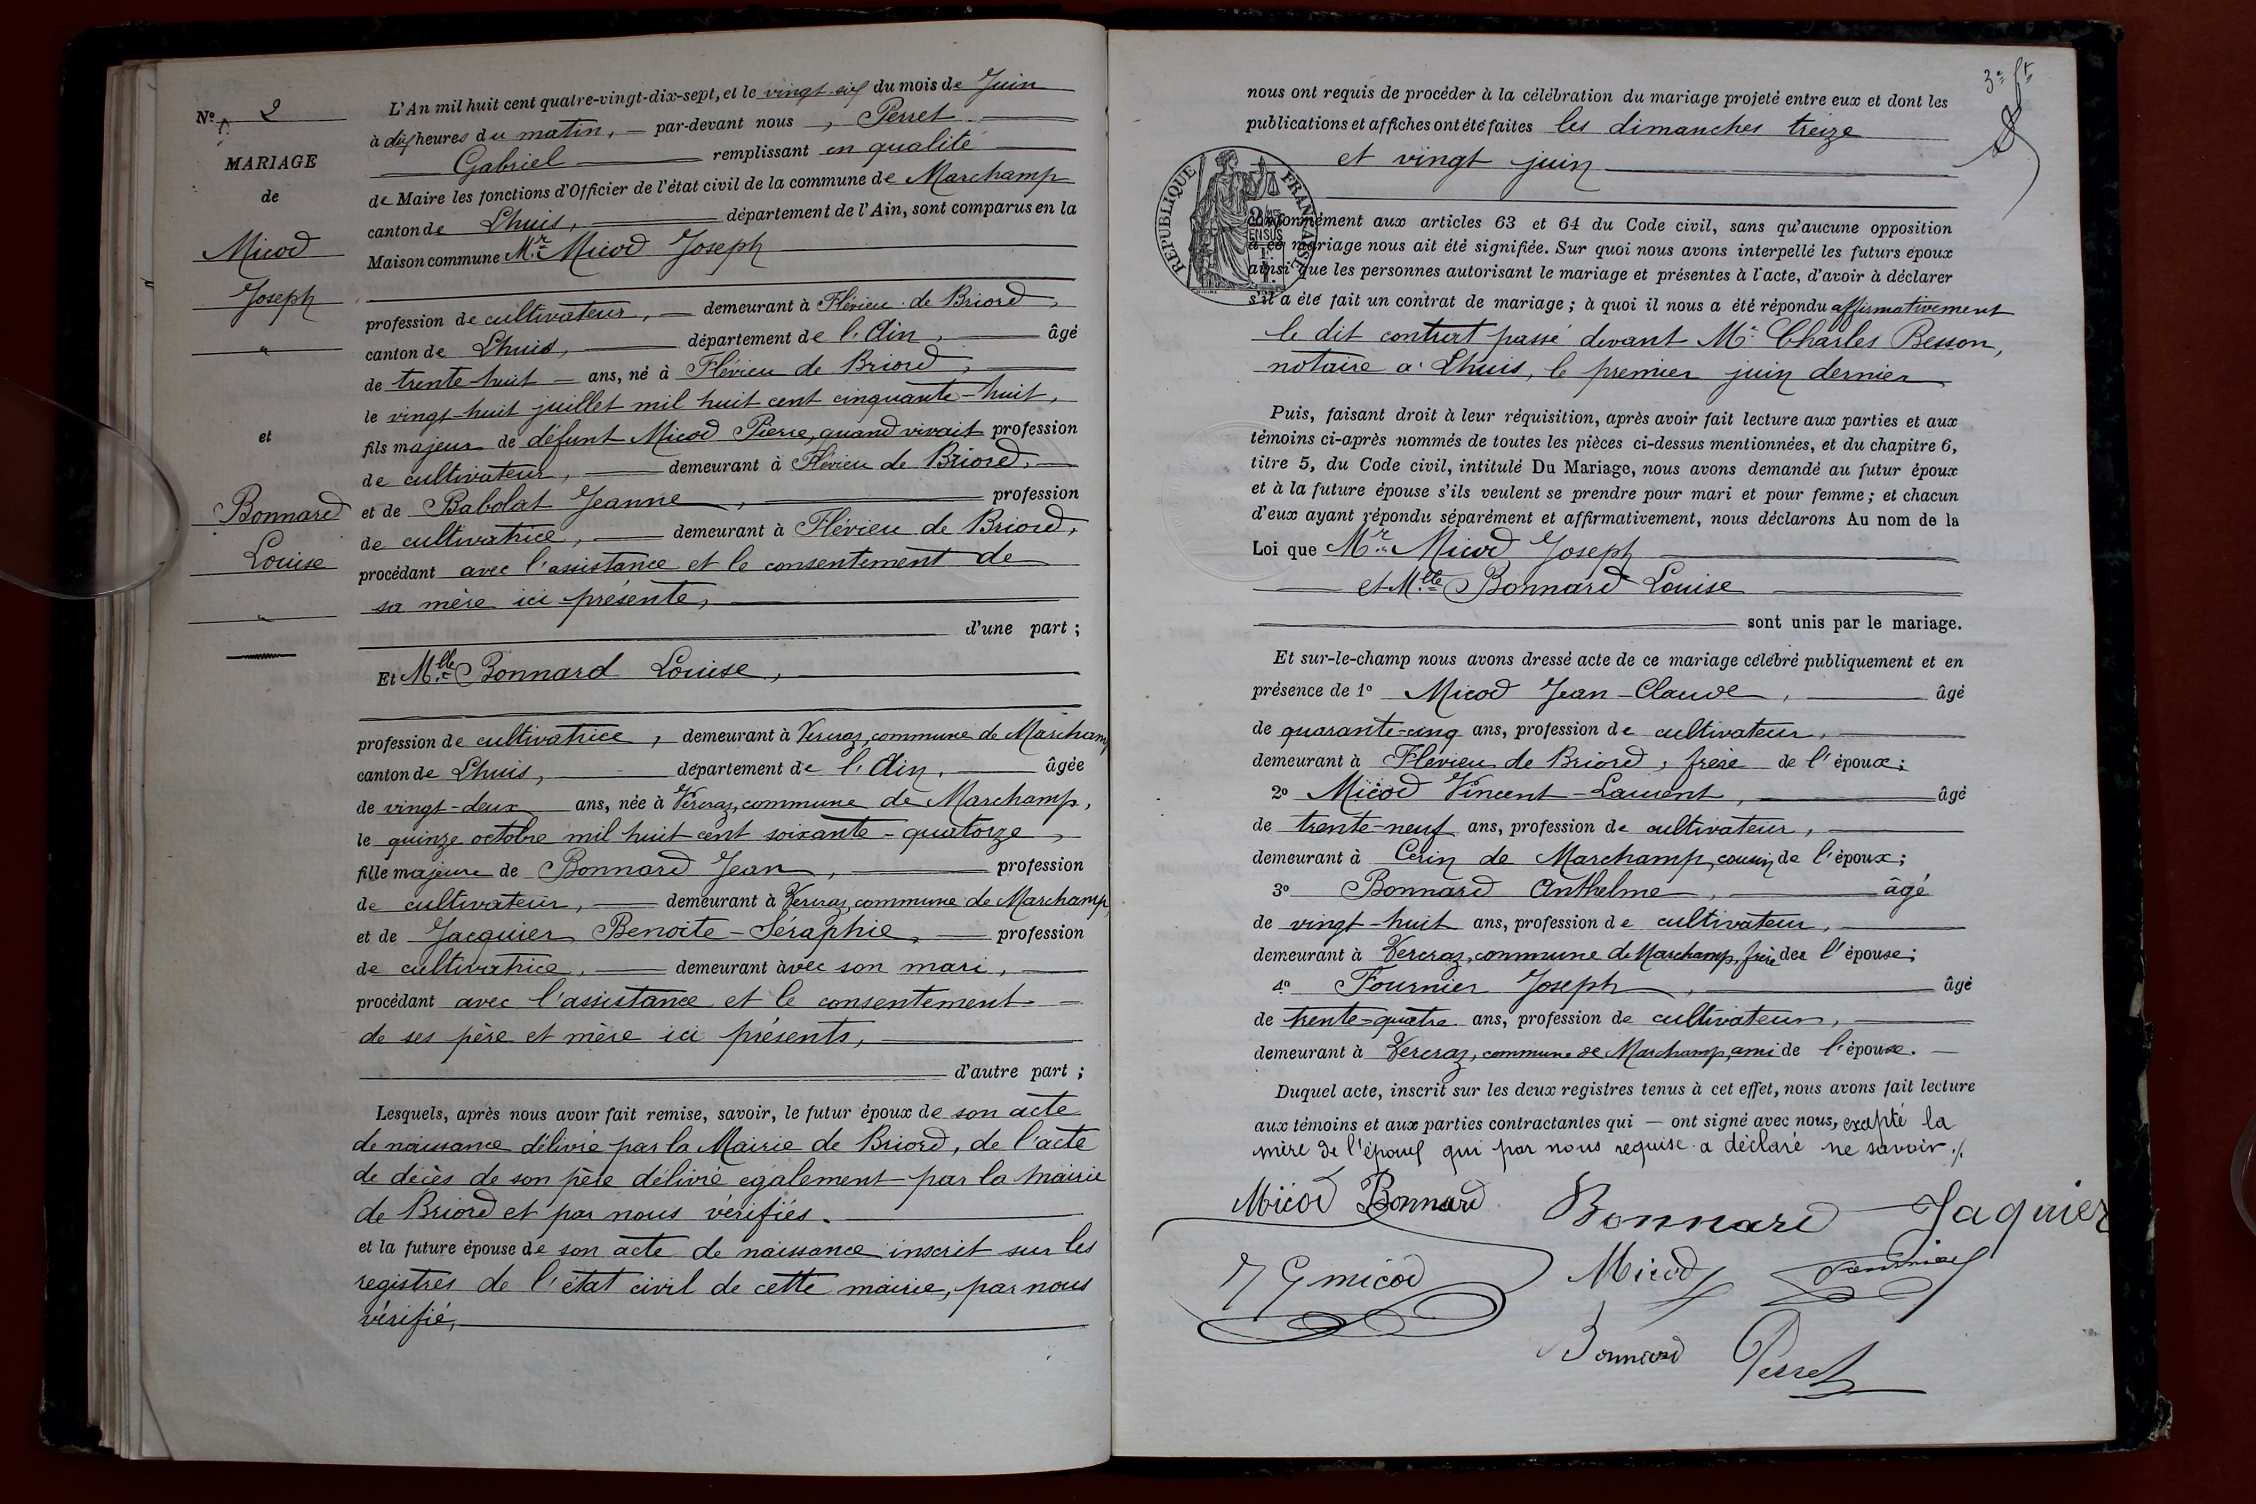 Nº 2
MARIAGE
de
Micod
Joseph
"
et
Bonnard
Louise
"
L'An mil huit cent quatre-vingt-dix-sept, et le vingt-six du mois de Juin
à dix heures du matin, — par-devant nous, Perret
Gabriel remplissant en qualité
de Maire les fonctions d'Officier de l'état civil de la commune de Marchamp
canton de Lhuis, département de l'Ain, sont comparus en la
Maison commune Mr Micod Joseph
profession de cultivateur, — demeurant à Flévieu de Briord,
canton de Lhuis, département de l'Ain, âgé
de trente-huit — ans, né à Flévieu de Briord,
le vingt-huit juillet mil huit cent cinquante-huit,
fils majeur de défunt Micod Pierre, quand vivait profession
de cultivateur, demeurant à Flévieu de Briord,
et de Babolat Jeanne, profession
de cultivatrice, demeurant à Flévieu de Briord,
procédant avec l'assistance et le consentement de
sa mère ici présente,
d'une part ;
Et Mlle Bonnard Louise,
profession de cultivatrice, demeurant à Vercraz, commune de Marchamp
canton de Lhuis, département de l'Ain, âgée
de vingt-deux ans, née à Vercraz, commune de Marchamp,
le quinze octobre mil huit cent soixante-quatorze,
fille majeure de Bonnard Jean, profession
de cultivateur, demeurant à Vercraz, commune de Marchamp,
et de Jacquier Benoite-Séraphie, profession
de cultivatrice, demeurant avec son mari,
procédant avec l'assistance et le consentement
de ses père et mère ici présents,
d'autre part ;
Lesquels, après nous avoir fait remise, savoir, le futur époux de son acte
de naissance délivré par la Mairie de Briord, de l'acte
de décès de son père délivré également par la mairie
de Briord et par nous vérifiés.
et la future épouse de son acte de naissance inscrit sur les
registres de l'état civil de cette mairie, par nous
vérifié,
3e ft
nous ont requis de procéder à la célébration du mariage projeté entre eux et dont les
publications et affiches ont été faites les dimanches treize
et vingt juin
RÉPUBLIQUE FRANÇAISE
conformément aux articles 63 et 64 du Code civil, sans qu'aucune opposition
à ce mariage nous ait été signifiée. Sur quoi nous avons interpellé les futurs époux
ainsi que les personnes autorisant le mariage et présentes à l'acte, d'avoir à déclarer
s'il a été fait un contrat de mariage ; à quoi il nous a été répondu affirmativement
le dit contrat passé devant Me Charles Besson,
notaire à Lhuis, le premier juin dernier
Puis, faisant droit à leur réquisition, après avoir fait lecture aux parties et aux
témoins ci-après nommés de toutes les pièces ci-dessus mentionnées, et du chapitre 6,
titre 5, du Code civil, intitulé Du Mariage, nous avons demandé au futur époux
et à la future épouse s'ils veulent se prendre pour mari et pour femme ; et chacun
d'eux ayant répondu séparément et affirmativement, nous déclarons Au nom de la
Loi que Mr Micod Joseph
et Mlle Bonnard Louise
sont unis par le mariage.
Et sur-le-champ nous avons dressé acte de ce mariage célébré publiquement et en
présence de 1º Micod Jean-Claude, âgé
de quarante-cinq ans, profession de cultivateur,
demeurant à Flévieu de Briord, frère de l'époux ;
2º Micod Vincent-Laurent, âgé
de trente-neuf ans, profession de cultivateur,
demeurant à Cerin de Marchamp, cousin de l'époux ;
3º Bonnard Anthelme, âgé
de vingt-huit ans, profession de cultivateur,
demeurant à Vercraz, commune de Marchamp, frère de l'épouse ;
4º Fournier Joseph, âgé
de trente-quatre ans, profession de cultivateur,
demeurant à Vercraz, commune de Marchamp, ami de l'épouse.
Duquel acte, inscrit sur les deux registres tenus à cet effet, nous avons fait lecture
aux témoins et aux parties contractantes qui — ont signé avec nous, excepté la
mère de l'époux qui par nous requise a déclaré ne savoir ./.
Micod Bonnard Bonnard Jaquier
J C micod Micod Fournier
Bonnard Perret